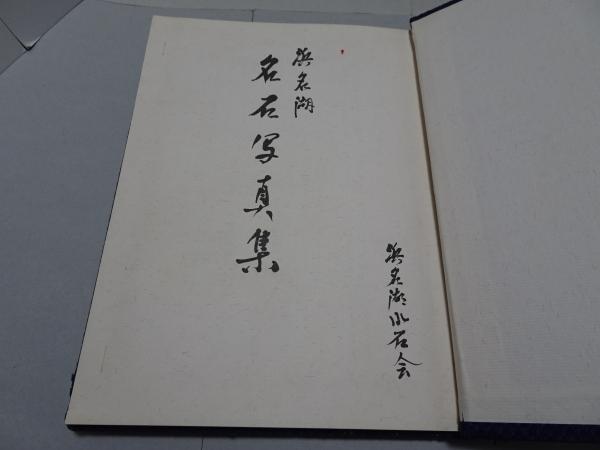 浜名湖
名石写真集
浜名湖水石会